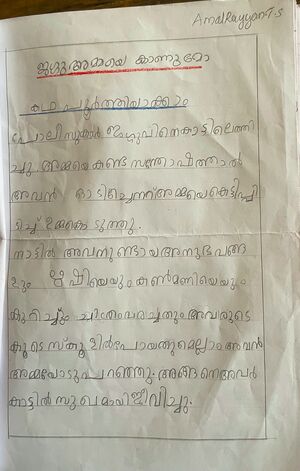 Amal Rayyan T.S
ജഗ്ഗു അമ്മയെ കാണുമോ
കഥ പൂർത്തിയാക്കാം
പോലീസുകാർ ജഗ്ഗുവിനെകാട്ടിലെത്തി
ച്ചു. അമ്മയെ കണ്ട സന്തോഷത്താൽ
അവൻ ഓടിച്ചെന്ന് അമ്മയെകെട്ടിപ്പി
ടിച്ച് ഉമ്മകൊടുത്തു.
നാട്ടിൽ അവനുണ്ടായ അനുഭവങ്ങ
ളും ഋഷിയെയും കൺമണിയെയും
കുറിച്ചും ചിത്രംവരച്ചതും അവരുടെ
കൂടെ സ്കൂളിൽപോയതുമെല്ലാം അവൻ
അമ്മയോടുപറഞ്ഞു. അങ്ങനെ അവർ
കാട്ടിൽ സുഖമായി ജീവിച്ചു.